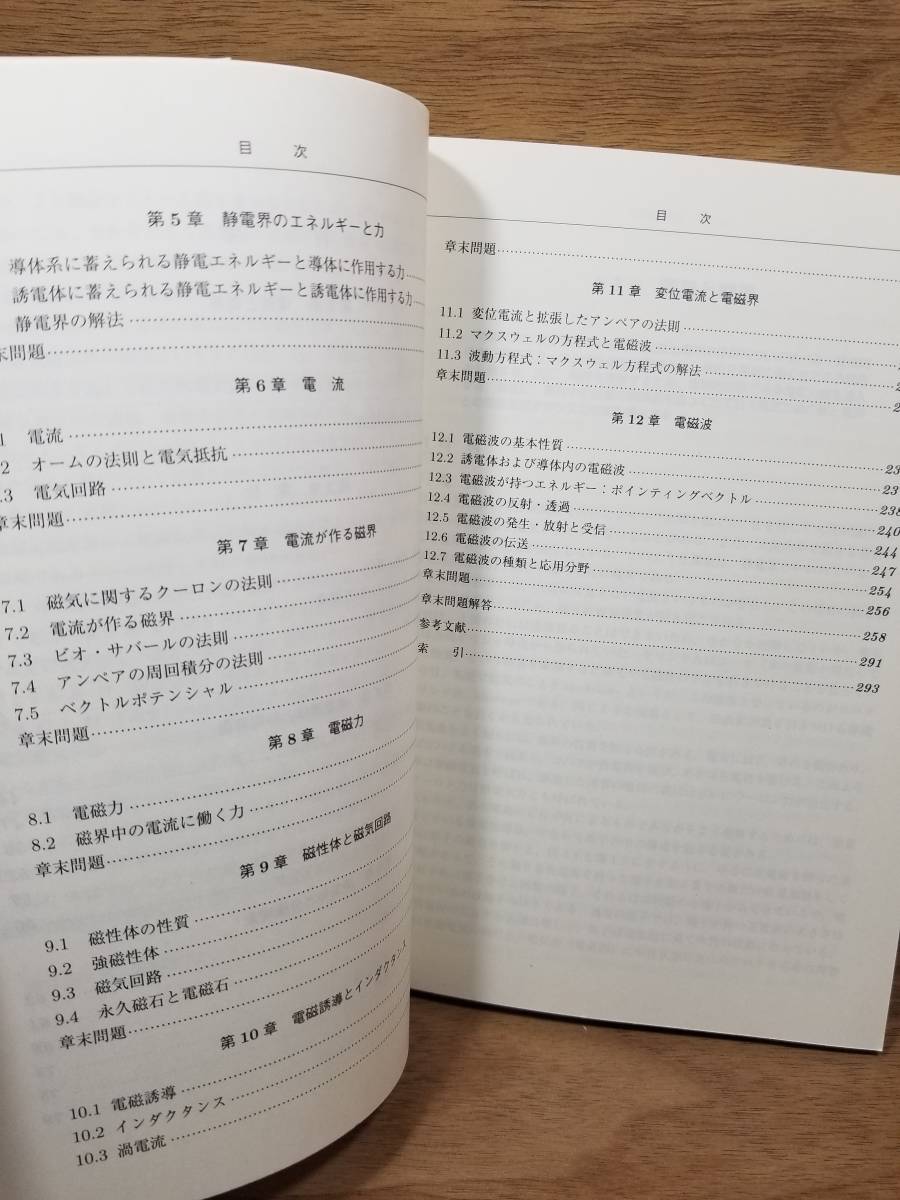 目 次
第5章 静電界のエネルギーと力
導体系に蓄えられる静電エネルギーと導体に作用する力
誘電体に蓄えられる静電エネルギーと誘電体に作用する力
静電界の解法
末問題
第6章 電 流
1 電流
2 オームの法則と電気抵抗
.3 電気回路
章末問題
第7章 電流が作る磁界
7.1 磁気に関するクーロンの法則
7.2 電流が作る磁界
7.3 ビオ・サバールの法則
7.4 アンペアの周回積分の法則
7.5 ベクトルポテンシャル
章末問題
第8章 電磁力
8.1 電磁力
8.2 磁界中の電流に働く力
章末問題
第9章 磁性体と磁気回路
9.1 磁性体の性質
9.2 強磁性体
9.3 磁気回路
9.4 永久磁石と電磁石
章末問題
第10章 電磁誘導とインダクタンス
10.1 電磁誘導
10.2 インダクタンス
10.3 渦電流
目 次
章末問題
第11章 変位電流と電磁界
11.1 変位電流と拡張したアンペアの法則
11.2 マクスウェルの方程式と電磁波
11.3 波動方程式：マクスウェル方程式の解法
章末問題
第12章 電磁波
12.1 電磁波の基本性質 23
12.2 誘電体および導体内の電磁波 23
12.3 電磁波が持つエネルギー：ポインティングベクトル 238
12.4 電磁波の反射・透過 240
12.5 電磁波の発生・放射と受信 244
12.6 電磁波の伝送 247
12.7 電磁波の種類と応用分野 254
章末問題 256
章末問題解答 258
参考文献 291
索 引 293